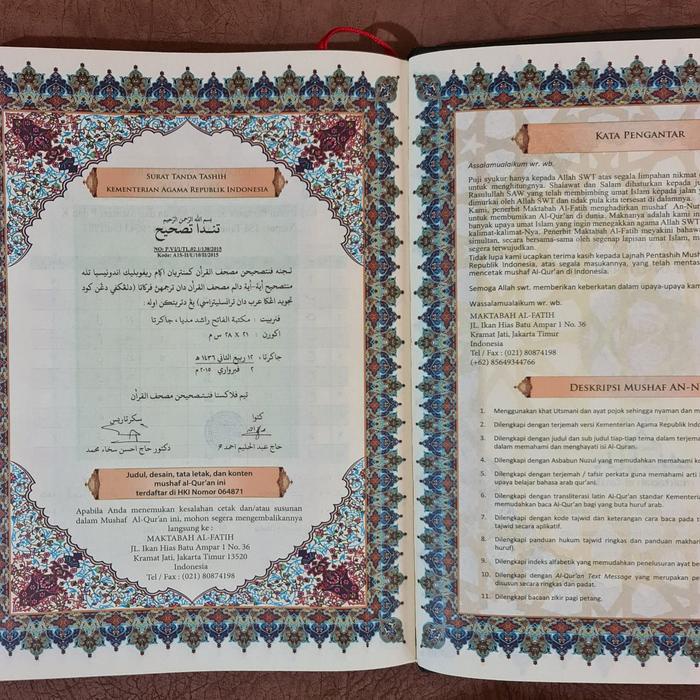 SURAT TANDA TASHIH
KEMENTERIAN AGAMA REPUBLIK INDONESIA
بسم الله الرحمن الرحيم
تندا تصحيح
NO: P.VI/1/TL.02.1/138/2015
Kode: AIS-II/U/10/II/2015
لجنه فنتصحيحن مصحف القرأن كمنتريان اڬام ريفوبليك اندونيسيا تله
منتصحيح أية-أية دالم مصحف القرأن دان ترجمهن فركاتا (دلڠكفي دڠن كود
تجويد اڠكا عرب دان ترانسليتراسي) يڠ دتربيتكن اوله :
فنربيت : مكتبة الفاتح راشد مديا ، جاكرتا
اكورن : ٢١ x ٢٨ س م
جاكرتا، ١٢ ربيع الثاني ١٤٣٦ ه
٢ فبرواري ٢٠١٥ م
تيم فلاكسنا فنتصحيحن مصحف القرأن
كتوا
سكرتاريس
حاج عبد الحليم احمد
دكتور حاج احسن سخاء محمد
Judul, desain, tata letak, dan konten
mushaf al-Qur'an ini
terdaftar di HKI Nomor 064871
Apabila Anda menemukan kesalahan cetak dan/atau susunan
dalam Mushaf Al-Qur'an ini, mohon segera mengembalikannya
langsung ke :
MAKTABAH AL-FATIH
JL. Ikan Hias Batu Ampar 1 No. 36
Kramat Jati, Jakarta Timur 13520
Indonesia
Tel / Fax : (021) 80874198
KATA PENGANTAR
Assalamualaikum wr. wb.
Puji syukur hanya kepada Allah SWT atas segala limpahan nikmat
untuk menghitungnya. Shalawat dan Salam dihaturkan kepada
Rasulullah SAW yang telah membimbing umat Islam kepada jalan
dimurkai oleh Allah SWT dan tidak pula kita tersesat di dalamnya.
Kami, penerbit Maktabah Al-Fatih menghadirkan mushaf An-Nur
untuk membumikan Al-Qur'an di dunia. Makanya adalah kami
banyak upaya umat Islam yang ingin menegakkan agama Allah SWT
kalimat-kalimat-Nya. Penerbit Maktabah Al-Fatih meyakini bahwa
simultan, secara bersama-sama oleh segenap lapisan umat Islam,
segera terwujudkan.
Tidak lupa kami ucapkan terima kasih kepada Lajnah Pentashih Mushaf
Republik Indonesia, atas segala masukannya, yang telah mentas
mencetak mushaf Al-Qur'an di Indonesia.
Semoga Allah swt. memberikan keberkatan dalam upaya-upaya kami
Wassalamualaikum wr. wb.
MAKTABAH AL-FATIH
JL. Ikan Hias Batu Ampar 1 No. 36
Kramat Jati, Jakarta Timur
Indonesia
Tel / Fax : (021) 80874198
(+62) 85649344766
DESKRIPSI MUSHAF AN-N
1. Menggunakan khat Utsmani dan ayat pojok sehingga nyaman dan
2. Dilengkapi dengan terjemah versi Kementerian Agama Republik Indo
3. Dilengkapi dengan judul dan sub judul tiap-tiap tema dalam terjem
dalam memahami dan menghayati isi Al-Quran.
4. Dilengkapi dengan Asbabun Nuzul yang memudahkan memahami
5. Dilengkapi dengan terjemah / tafsir perkata guna memahami arti
upaya belajar bahasa arab qur'ani.
6. Dilengkapi dengan transliterasi latin Al-Qur'an standar Kementer
memudahkan baca Al-Qur'an bagi yang buta huruf arab.
7. Dilengkapi dengan kode tajwid dan keterangan cara baca pada
tajwid secara aplikatif.
8. Dilengkapi panduan hukum tajwid ringkas dan panduan makhari
huruf).
9. Dilengkapi indeks alfabetik yang memudahkan penelusuran ayat
10. Dilengkapi dengan Al-Qur'an Text Message yang merupakan
disusun secara ringkas dan padat.
11. Dilengkapi bacaan zikir pagi petang.